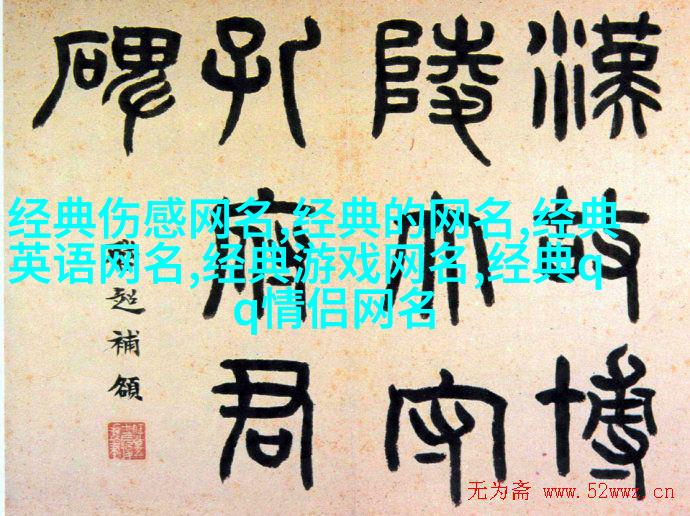 漢故博
陵太守
孔府君
碑
超補額
经典伤感网名,经典的网名,经典
英语网名,经典游戏网名,经典q
q情侣网名
无为斋 www.52wwz.cn